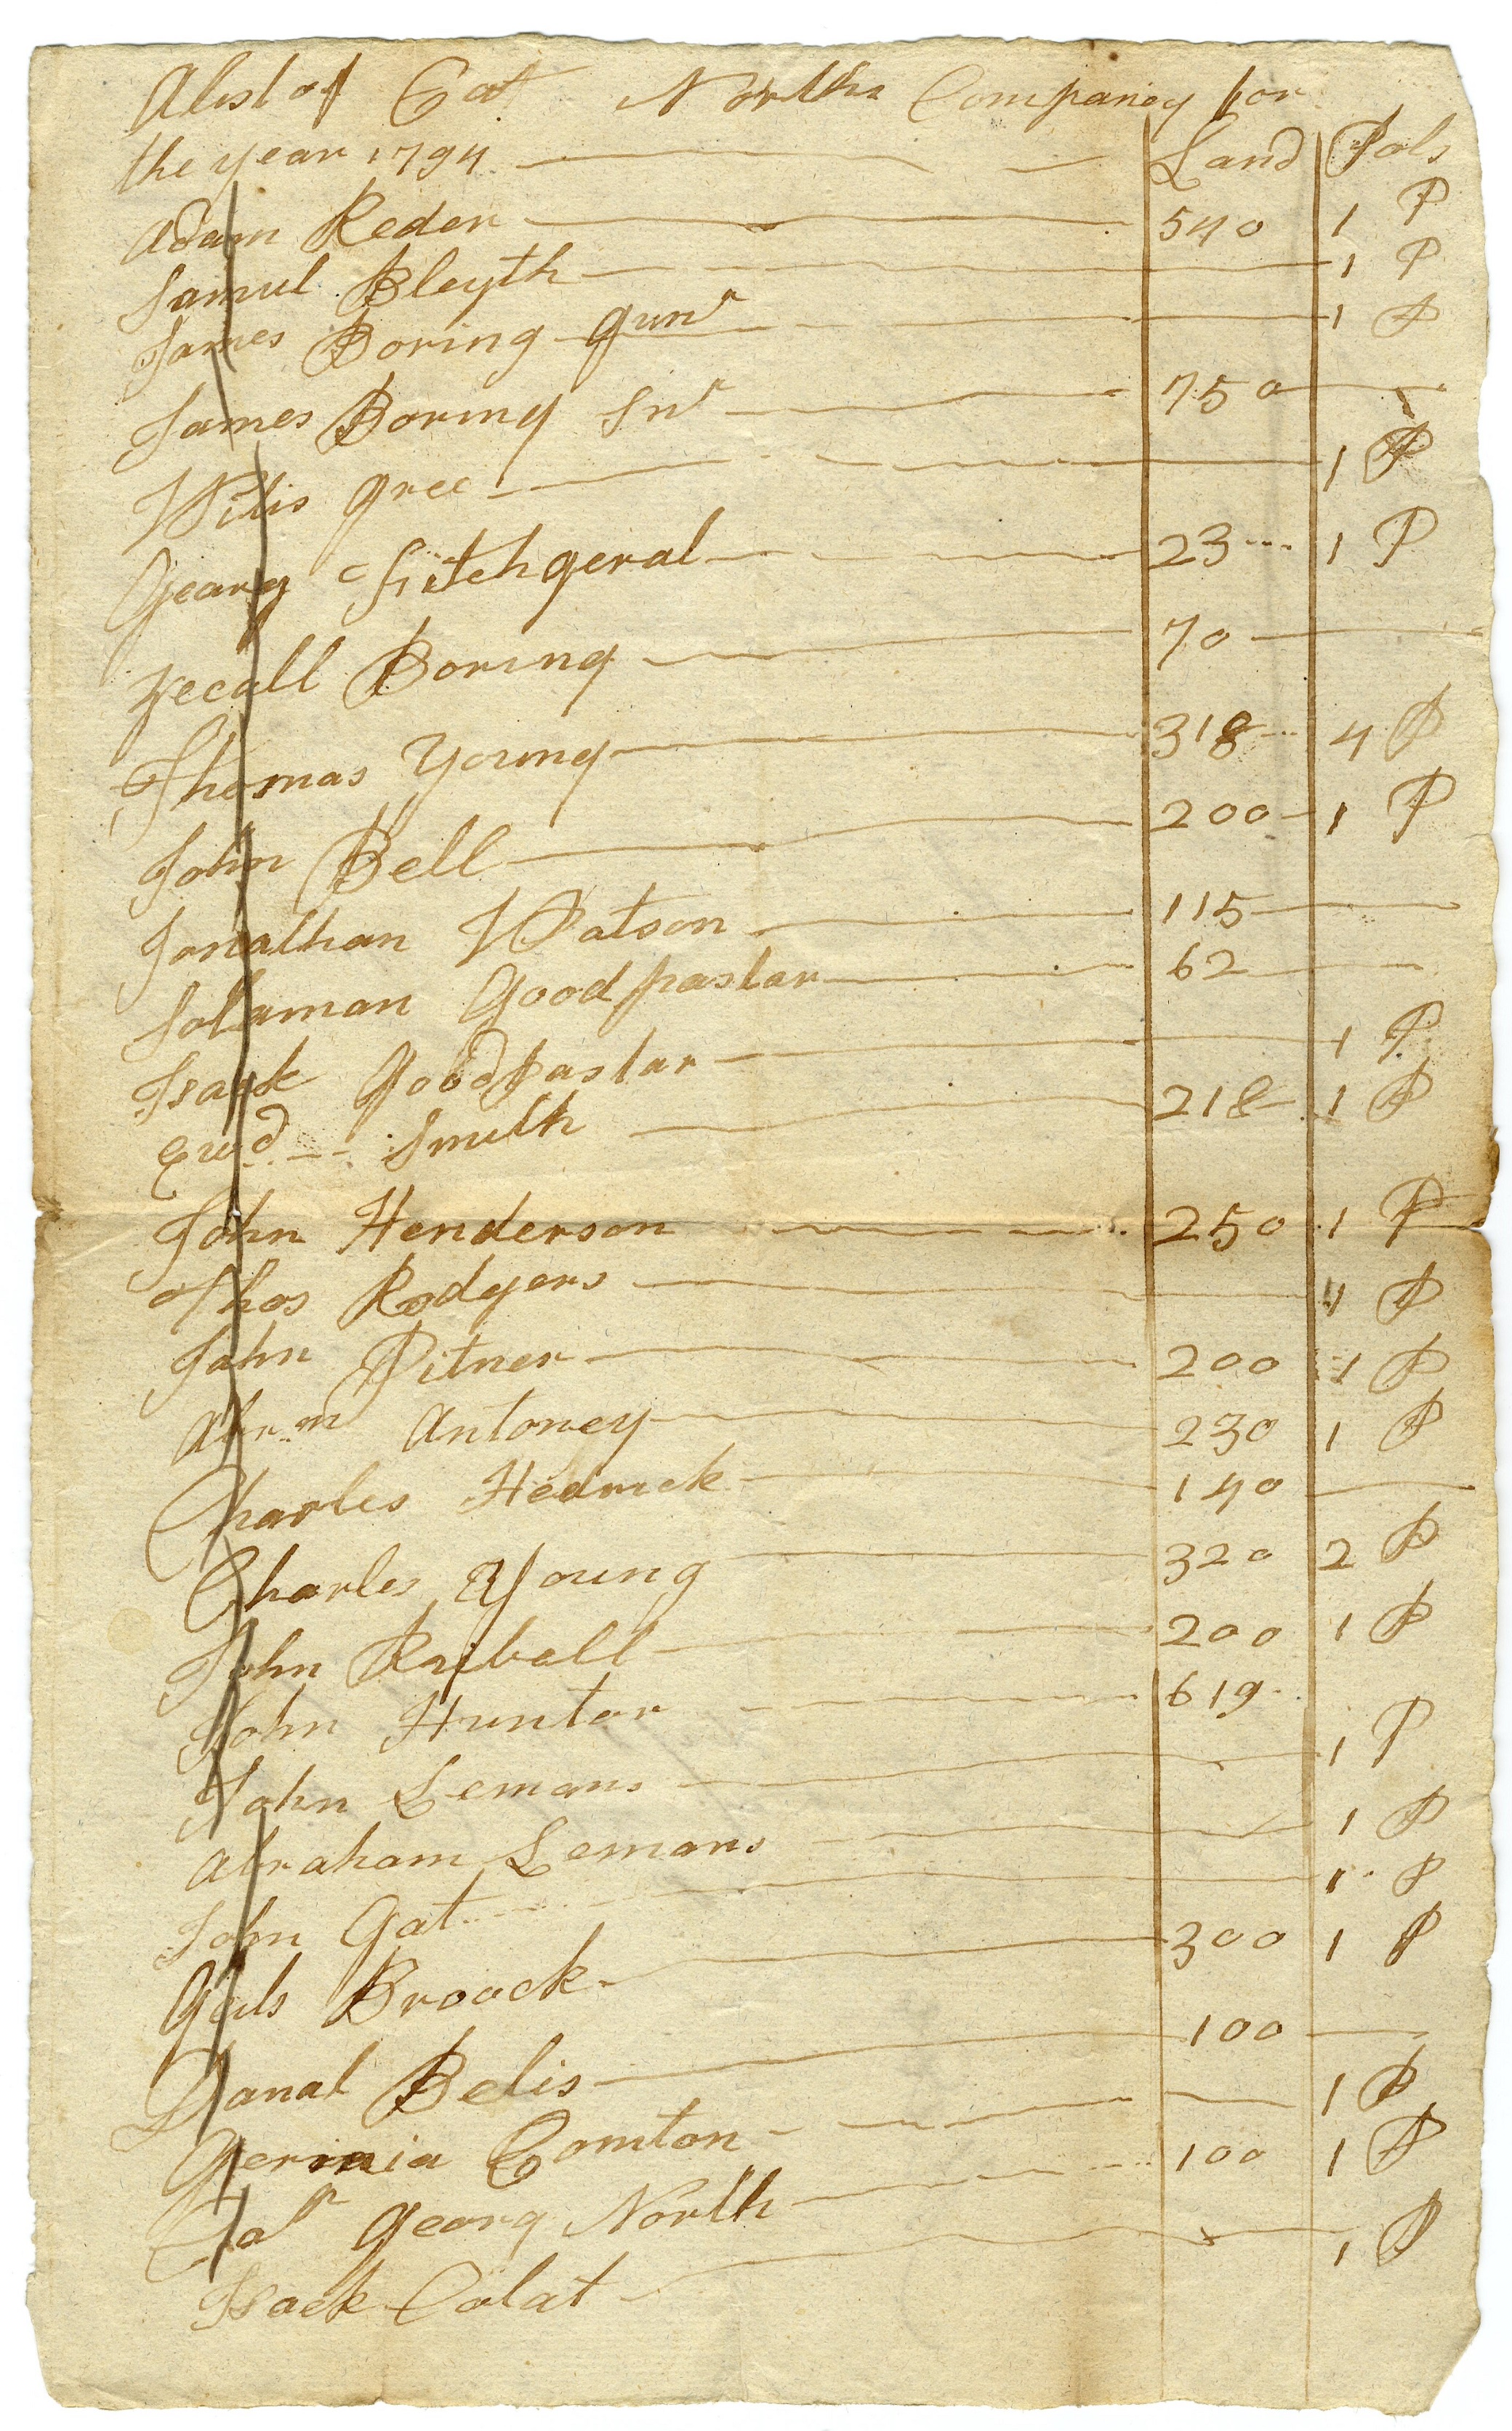 A list of Cat Norths Company for
the year 1794 Land Pols
Adam Reder 540 1 P
Samul Bleyth 1 P
James Boring Junr 1 P
James Boring Snr 750
Willis gree 1 P
Gearg Fitchgeral 23 1 P
Zecall Boring 70
Thomas Young 318 4 P
John Bell 200 1 P
Jonathan Watson 115
Sollaman Goodpastar 62
Isack Goodpastar 1 P
Ewd Smith 218 1 P
John Henderson 250 1 P
Thos Rodgers P
John Pitner 200 1 P
Abrm Antoney 230 1 P
Charles Hedrick 140
Charles Young 320 2 P
John 200 1 P
John Huntar 619
John Lemans 1 P
Abraham Lemans 1 P
John Gat 1 P
Broock 300 1 P
Danal Belis 100
Jermia Comton 1 P
Georg North 100 1 P
Isack Colat 1 P